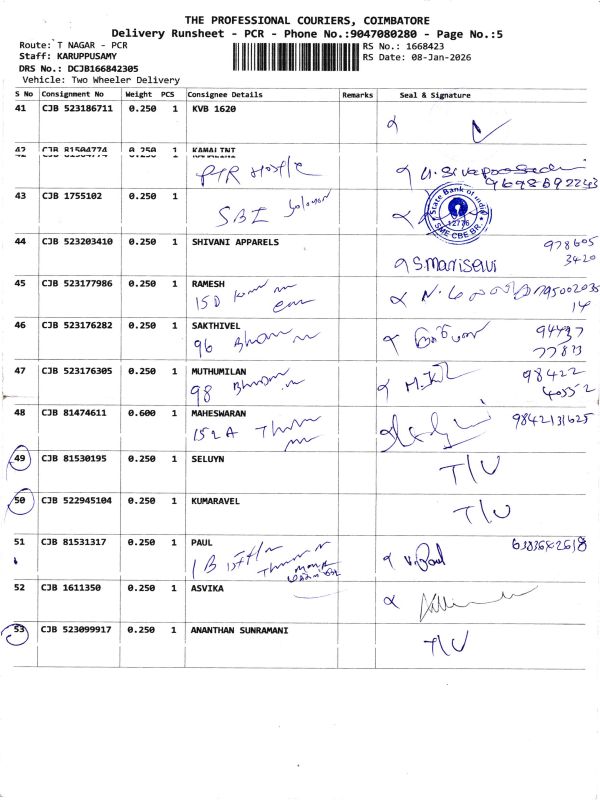 THE PROFESSIONAL COURIERS, COIMBATORE
Delivery Runsheet - PCR - Phone No.:9047080280 - Page No.:5
Route: T NAGAR - PCR
RS No.: 1668423
Staff: KARUPPUSAMY
RS Date: 08-Jan-2026
DRS No.: DCJB166842305
Vehicle: Two Wheeler Delivery
S No Consignment No Weight PCS Consignee Details Remarks Seal & Signature
41 CJB 523186711 0.250 1 KVB 1620
42 CJB 81504774 0.250 1 KAMALINI
PTR Hostle
9698692243
43 CJB 1755102 0.250 1
SBI
State Bank of India
12776
SME CBE BR
44 CJB 523203410 0.250 1 SHIVANI APPARELS
978605
3420
S.Mariselvi
45 CJB 523177986 0.250 1 RAMESH
15D
14
46 CJB 523176282 0.250 1 SAKTHIVEL
96
94437
77873
47 CJB 523176305 0.250 1 MUTHUMILAN
98
98422
40352
48 CJB 81474611 0.600 1 MAHESWARAN
152A
9842131625
49 CJB 81530195 0.250 1 SELUYN
T/U
50 CJB 522945104 0.250 1 KUMARAVEL
T/U
51 CJB 81531317 0.250 1 PAUL
6383642618
1B
V. Paul
52 CJB 1611350 0.250 1 ASVIKA
53 CJB 523099917 0.250 1 ANANTHAN SUNRAMANI
T/U